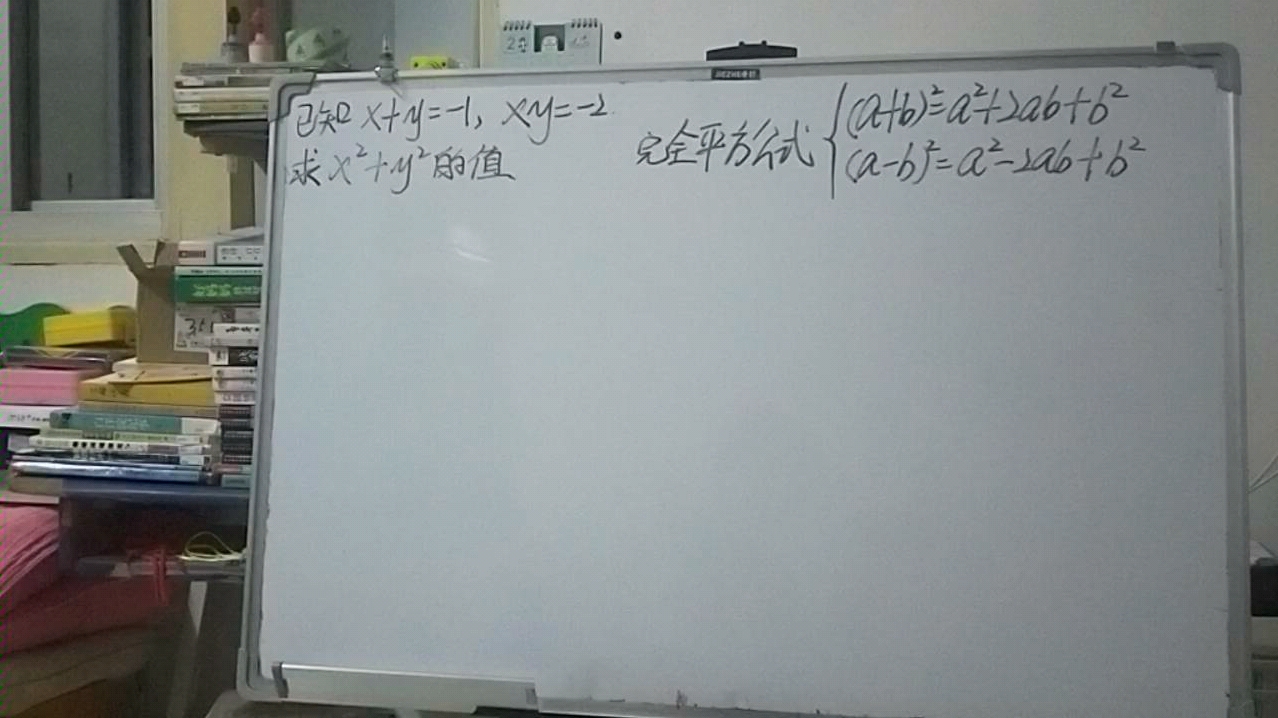 已知 x+y=-1, xy=-2
求 x²+y² 的值
完全平方公式 { (a+b)²=a²+2ab+b²
(a-b)²=a²-2ab+b²